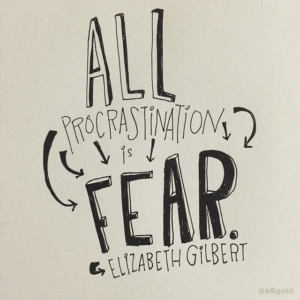 ALL
PROCRASTINATION
is
FEAR.
ELIZABETH GILBERT
@k8gold